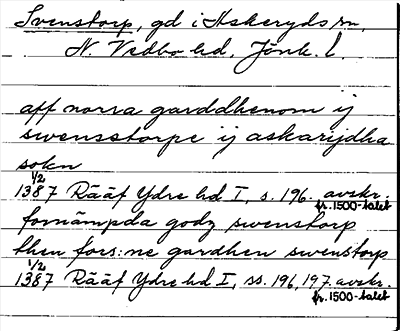 Svenstorp, gd i Askeryds sn,
N. Vedbo hd, Jönk. l.
aff norra garddhenom ij
swensstorpe ij askarijdha
sokn
1/2
1387 Rääf Ydre hd I, s. 196. avskr.
fr. 1500-talet
fornämpda godz swenstorp
then förs:ne gardhen swenstorp
1/2
1387 Rääf Ydre hd I, ss. 196, 197. avskr.
fr. 1500-talet